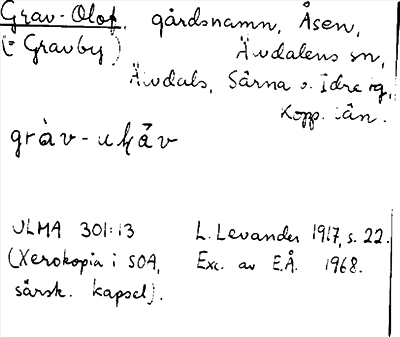 Grav-Olof, gårdsnamn, Åsen,
(= Gravby) Älvdalens sn,
Älvdals, Särna o. Idre tg,
Kopp. län.
gràv-uḷåv
ULMA 301:13 L. Levander 1917, s. 22.
(Xerokopia i SOA, Exc. av E.Å. 1968.
särsk. kapsel).